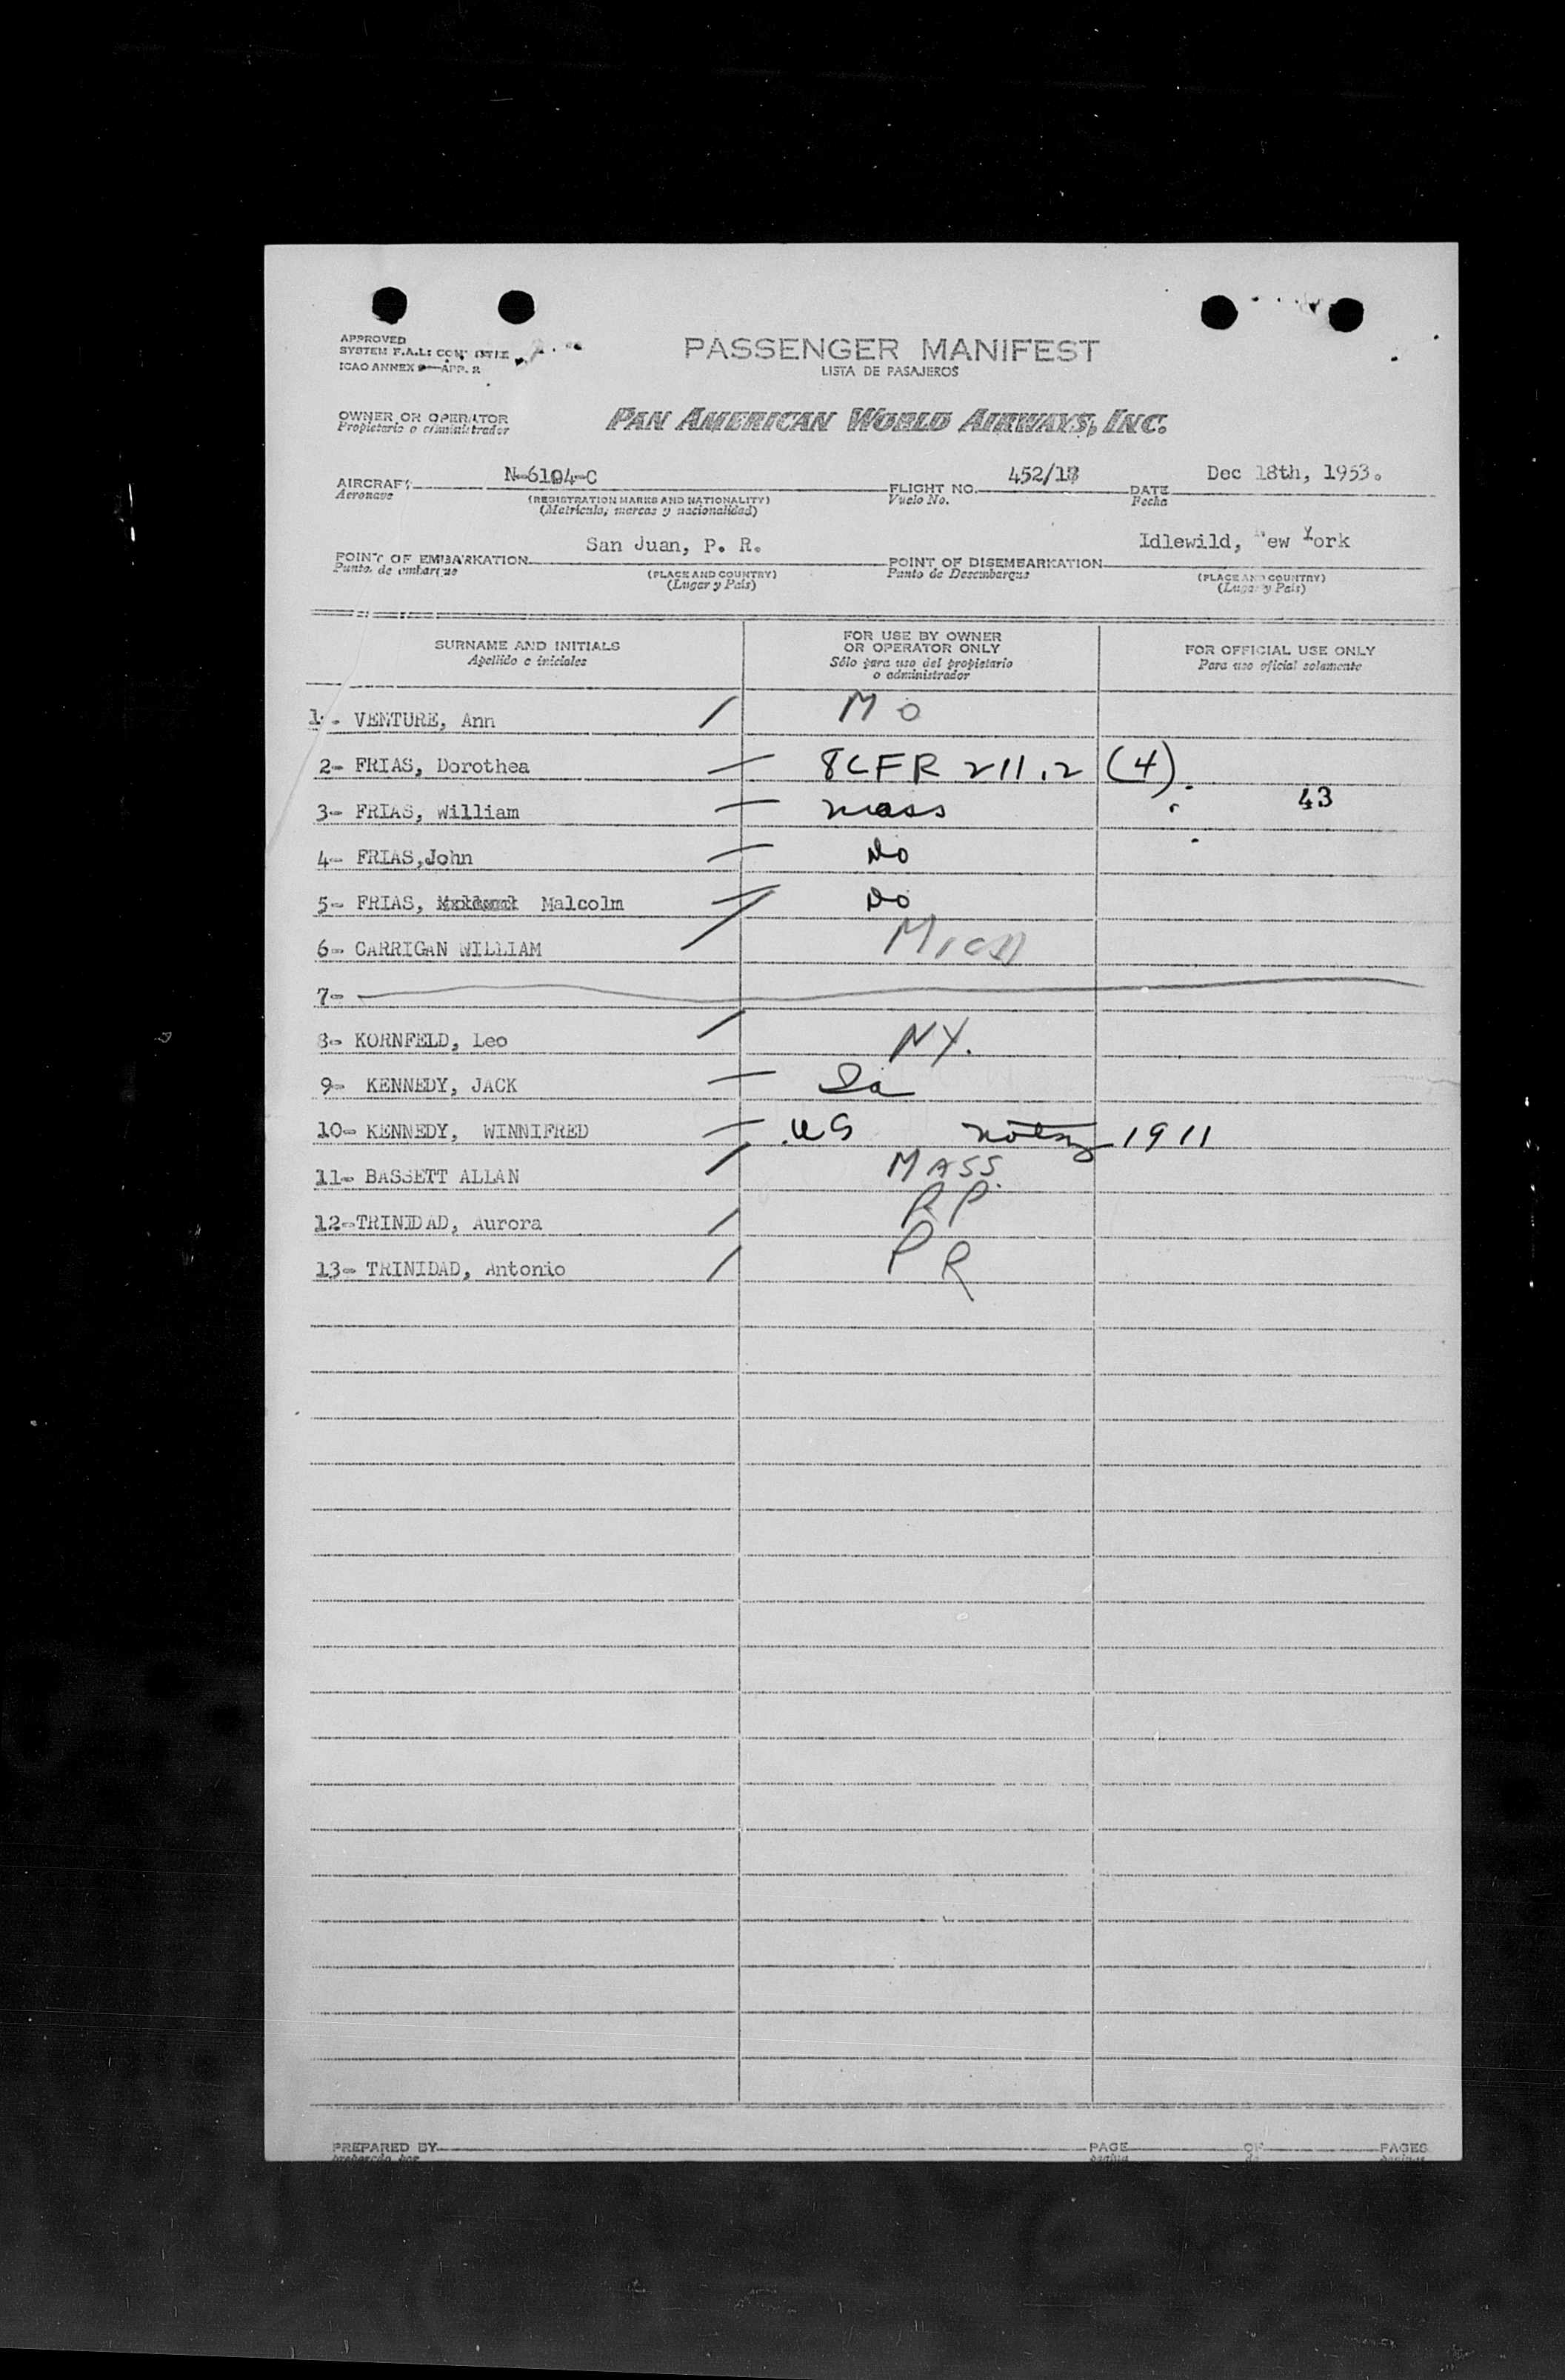 APPROVED
SYSTEM F.A.L:
ICAO ANNEX 9—APP. 2
PASSENGER MANIFEST
LISTA DE PASAJEROS
OWNER OR OPERATOR
Propietario o administrador
PAN AMERICAN WORLD AIRWAYS, INC.
AIRCRAFT N-6104-C FLIGHT NO. 452/18 DATE Dec 18th, 1953.
Aeronave (REGISTRATION MARKS AND NATIONALITY) Vuelo No. Fecha
(Matrícula, marcas y nacionalidad)
POINT OF EMBARKATION San Juan, P. R. POINT OF DISEMBARKATION Idlewild, New York
Punto de embarque (PLACE AND COUNTRY) Punto de Desembarque (PLACE AND COUNTRY)
(Lugar y País) (Lugar y País)
SURNAME AND INITIALS
Apellido e iniciales
FOR USE BY OWNER
OR OPERATOR ONLY
Sólo para uso del propietario
o administrador
FOR OFFICIAL USE ONLY
Para uso oficial solamente
1- VENTURE, Ann / MO
2- FRIAS, Dorothea — 8CFR 211.2 (4)
3- FRIAS, William — mass 43
4- FRIAS,John — Do
5- FRIAS, Malcolm — Do
6- CARRIGAN WILLIAM / MICH
7-
8- KORNFELD, Leo / NY.
9- KENNEDY, JACK — Ia
10- KENNEDY, WINNIFRED — US 1911
11- BASSETT ALLAN / MASS.
12-TRINIDAD, Aurora / RP
13- TRINIDAD, Antonio / PR
PREPARED BY PAGE OF PAGES
preparado por página de páginas